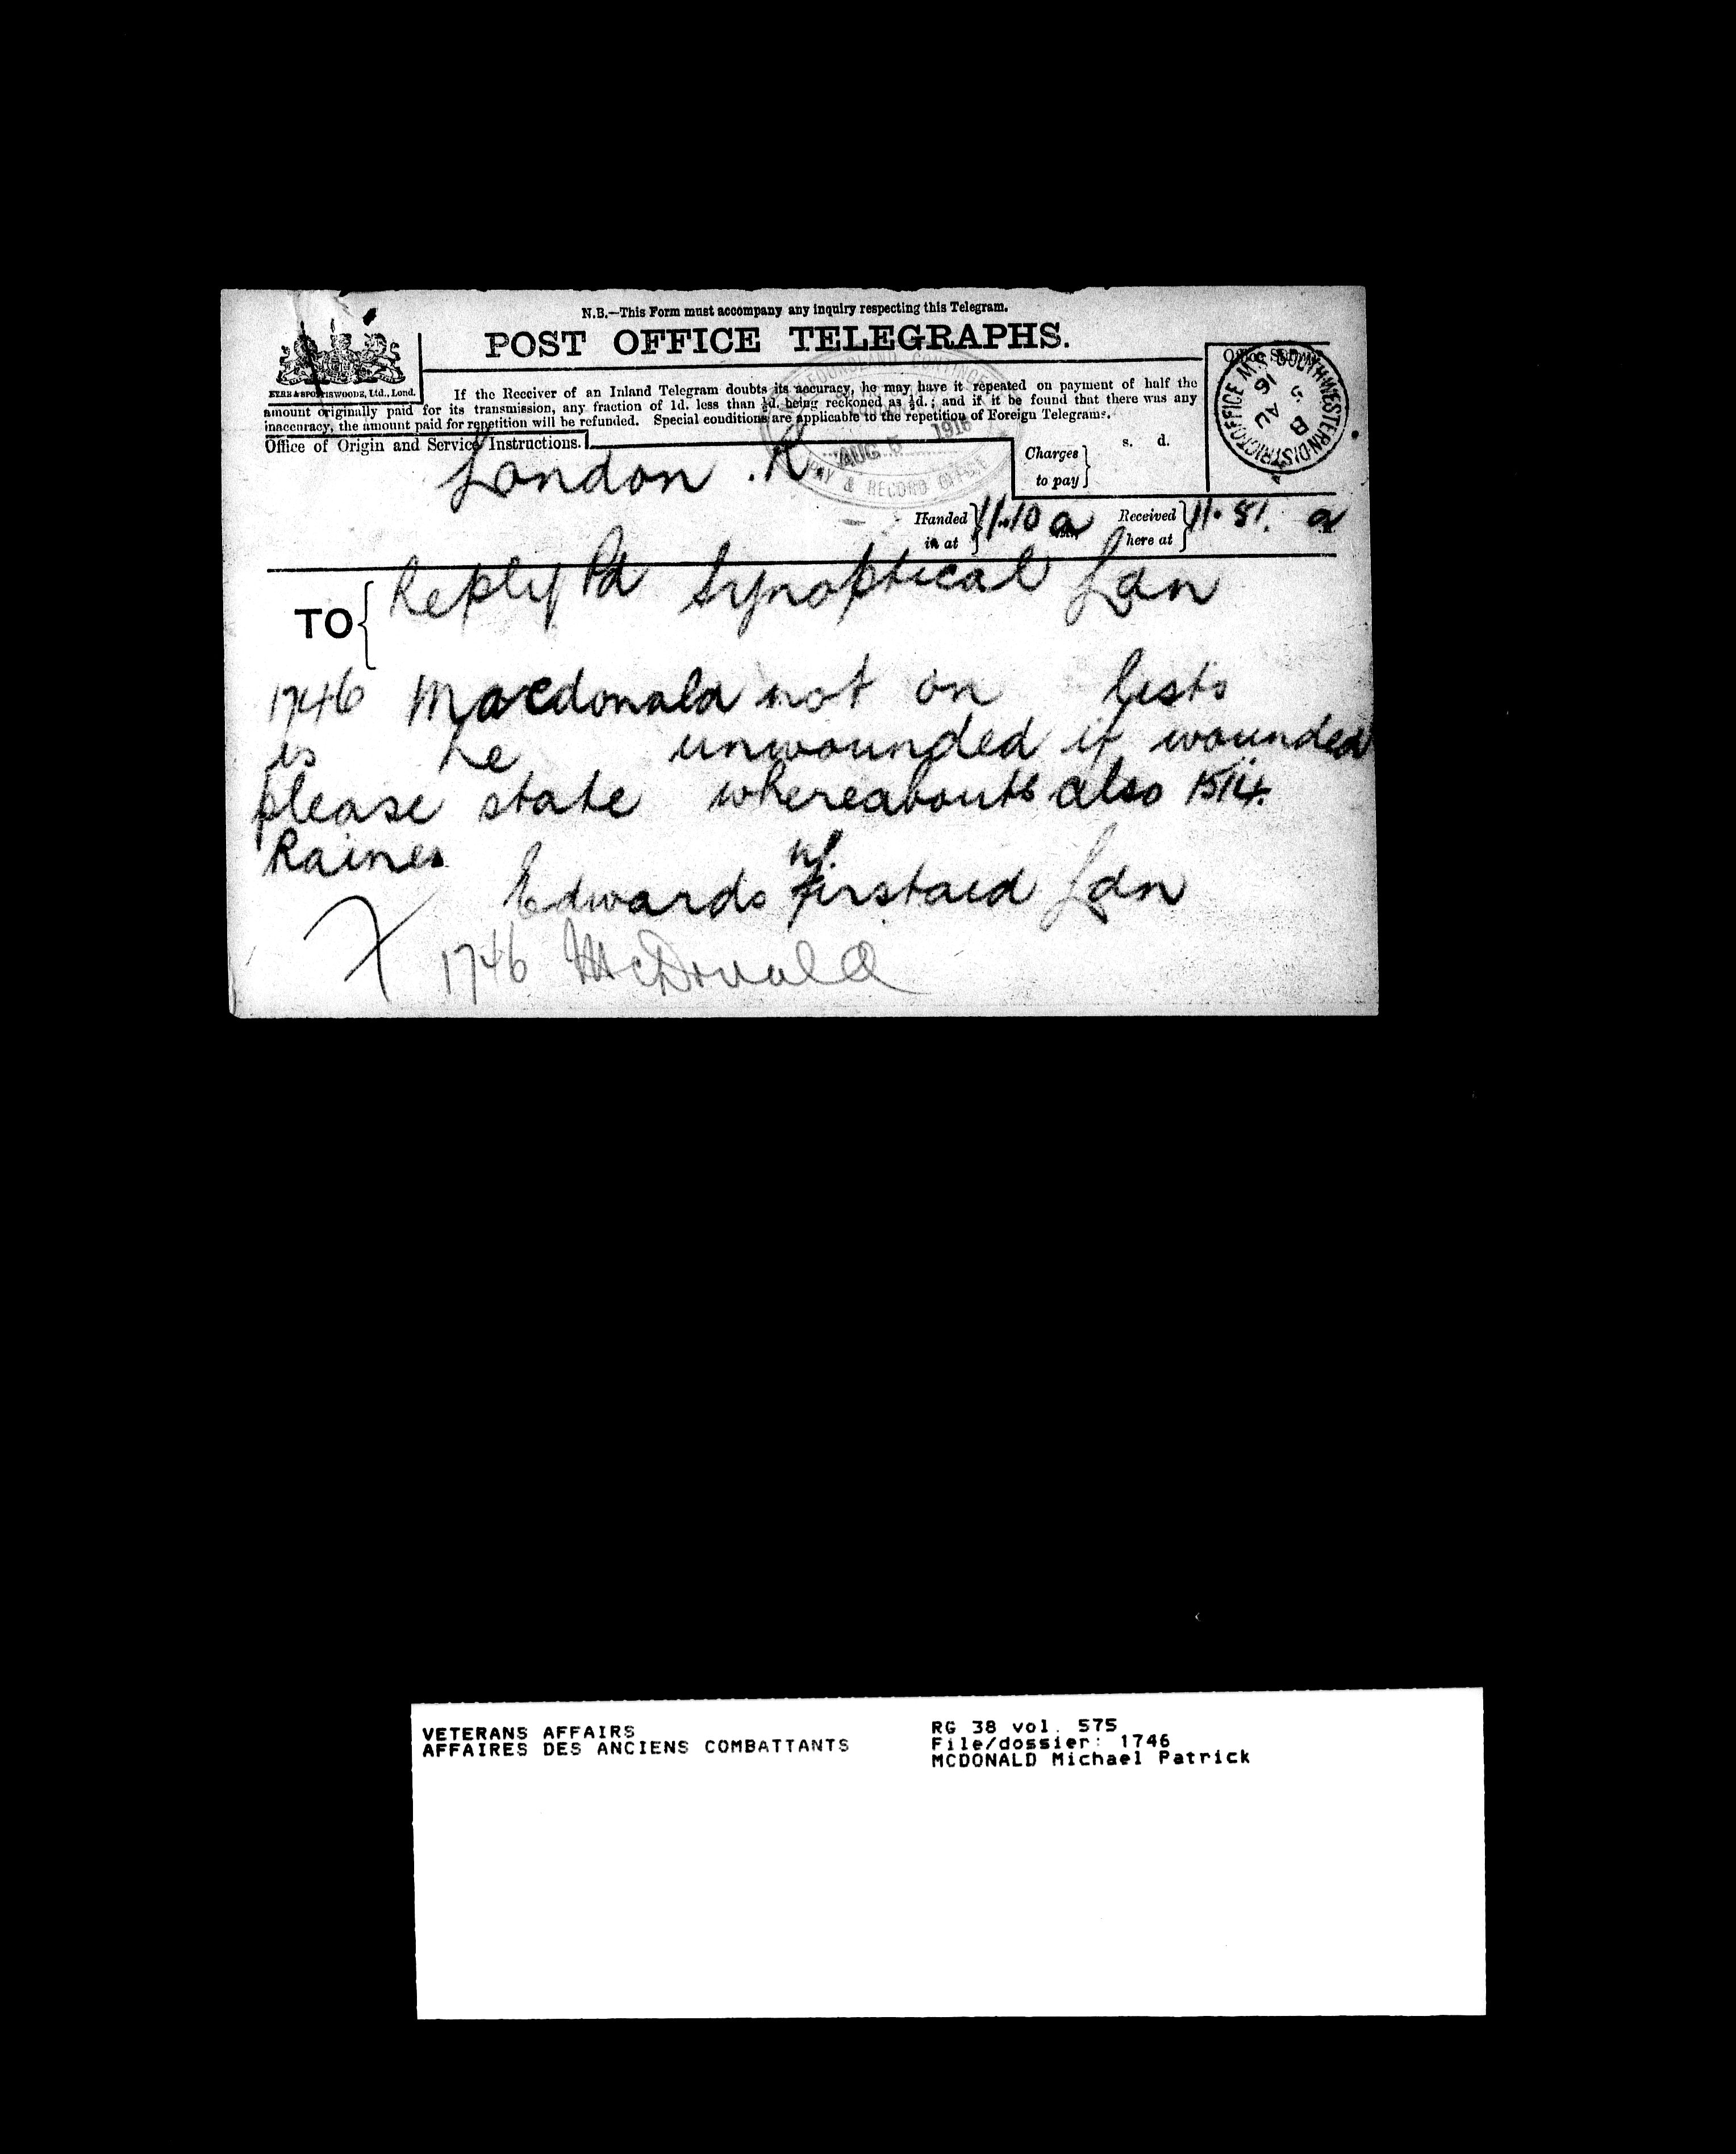 N.B.—This Form must accompany any inquiry respecting this Telegram.
POST OFFICE TELEGRAPHS.
If the Receiver of an Inland Telegram doubts its accuracy, he may have it repeated on payment of half the
amount originally paid for its transmission, any fraction of 1d. less than ½d. being reckoned as ½d.; and if it be found that there was any
inaccuracy, the amount paid for repetition will be refunded. Special conditions are applicable to the repetition of Foreign Telegrams.
Office of Origin and Service Instructions.
Office Stamp
SOUTH WESTERN DISTRICT OFFICE
B
5 AU
16
AUG 5 1916
PAY & RECORD OFFICE
London .R.
Charges to pay
s. d.
Handed in at 11.10 a
Received here at 11.31. a
TO Reply Pd Synoptical Ldn
1746 Macdonald not on lists
is he unwounded if wounded
please state whereabouts also 1514.
Raines
Edwards Firstaid Ldn
1746 McDonald
VETERANS AFFAIRS
AFFAIRES DES ANCIENS COMBATTANTS
RG 38 vol. 575
File/dossier: 1746
MCDONALD Michael Patrick